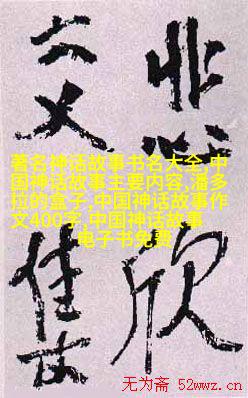 悲欣
交集
著名神话故事书名大全,中
国神话故事主要内容,潘多
拉的盒子,中国神话故事作
文400字,中国神话故事
电子书免费
无为斋 52wwz.cn